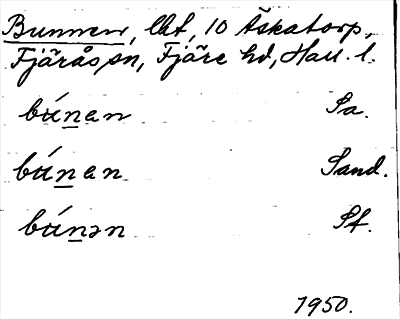 Bunnen, lht, 10 Äskatorp,
Fjärås sn, Fjäre hd, Hall. l.
bún̲an Sa.
bún̲an Sand.
bún̲ən Sf.
1950.